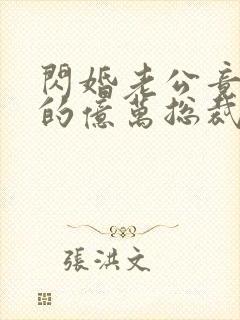 閃婚老公竟
的億萬總裁
張洪文